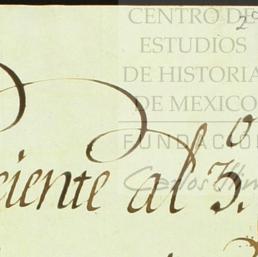 CENTRO DE
ESTUDIOS
DE HISTORIA
DE MEXICO
FUNDACIÓN
Carlos Slim
ciente al 3.º